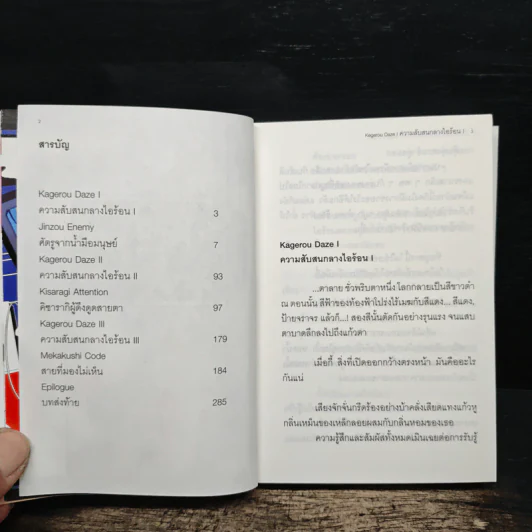 2
สารบัญ
Kagerou Daze I
ความสับสนกลางไอร้อน I 3
Jinzou Enemy
ศัตรูจากน้ำมือมนุษย์ 7
Kagerou Daze II
ความสับสนกลางไอร้อน II 93
Kisaragi Attention
คิซารากิผู้ดึงดูดสายตา 97
Kagerou Daze III
ความสับสนกลางไอร้อน III 179
Mekakushi Code
สายที่มองไม่เห็น 184
Epilogue
บทส่งท้าย 285
Kagerou Daze I ความสับสนกลางไอร้อน I 3
Kagerou Daze I
ความสับสนกลางไอร้อน I
...ตาลาย ชั่วพริบตาหนึ่ง โลกกลายเป็นสีขาวดำ
ณ ตอนนั้น สีฟ้าของท้องฟ้าโปร่งไร้เมฆกับสีแดง... สีแดง,
ป้ายจราจร แล้วก็...! สองสีนั้นตัดกันอย่างรุนแรง จนแสบ
ตาบาดลึกลงไปถึงแก้วตา
เมื่อกี้ สิ่งที่เปิดออกกว้างตรงหน้า มันคืออะไร
กันแน่
เสียงจักจั่นกรีดร้องอย่างบ้าคลั่งเสียดแทงแก้วหู
กลิ่นเหม็นของเหล็กลอยผสมกับกลิ่นหอมของเธอ
ความรู้สึกและสัมผัสทั้งหมดเมินเฉยต่อการรับรู้